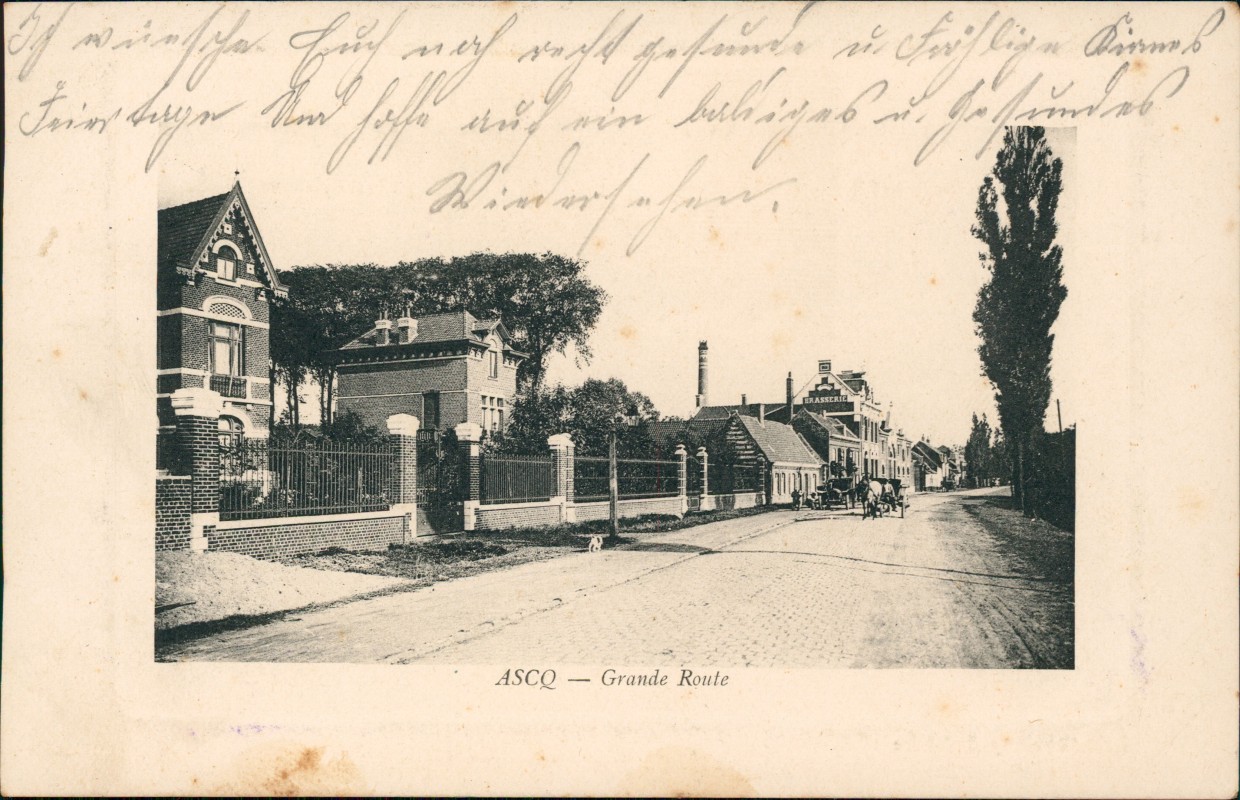 Ich wünsche Euch noch recht gesunde u. Fröhlige Kirmes
Feiertage Und hoffe auf ein baldiges u. Gesundes
Wiedersehen.
BRASSERIE
ASCQ — Grande Route